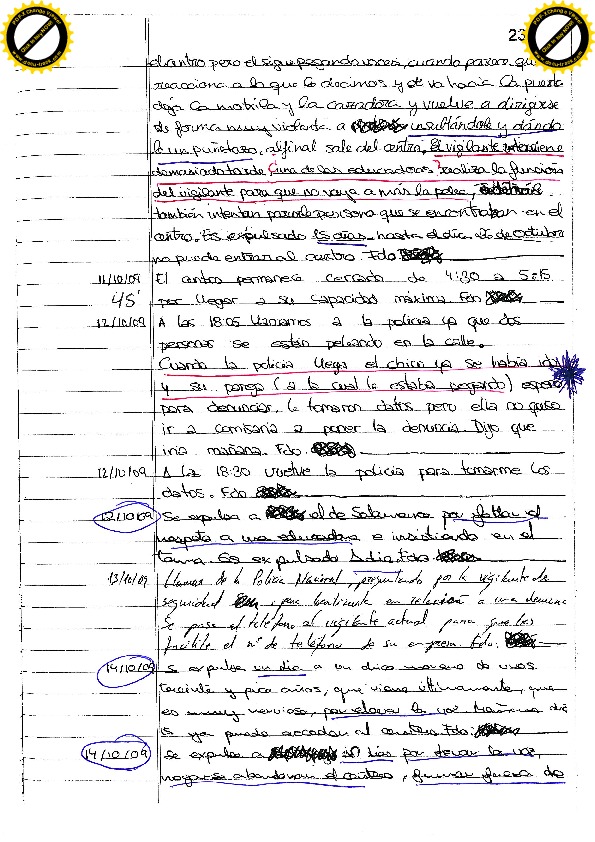 23
del centro pero el sigue pegando voces, cuando parece que
reacciona a lo que le decimos y se va hacia la puerta
deja la mochila y la cazadora y vuelve a dirigirse
de forma muy violenta a insultándole y dándo
le un puñetazo, al final sale del centro. El vigilante interviene
demasiado tarde (una de las educadoras) realiza la función
del vigilante para que no vaya a más la pelea,
también intentan pararle personas que se encontraban en el
centro. Es expulsado 15 días hasta el día 26 de octubre
no puede entrar al centro. Fdo
11/10/09 El centro permanece cerrado de 4:30 a 5:15
45' por llegar a su capacidad máxima Fdo
12/10/09 A las 18:05 llamamos a la policía ya que dos
personas se están peleando en la calle.
Cuando la policía llega el chico ya se había ido
y su pareja (a la cual le estaba pegando) espera
para denunciar, le tomaron datos pero ella no quiso
ir a comisaría a poner la denuncia. Dijo que
iría mañana. Fdo.
12/10/09 A las 18:30 vuelve la policía para tomarme los
datos. Fdo
12/10/09 Se expulsa a el de Salamanca por faltar el
respeto a una educadora e insistiendo en el
tema. Es expulsado 1 día. Fdo
13/10/09 Llaman de la Policía Nacional, preguntando por la vigilante de
seguridad, para en relación a una denuncia
Se pasa el teléfono al vigilante actual para que les
facilite el nº de teléfono de su empresa. Fdo.
14/10/09 Se expulsa un día a un chico moreno de unos
treinta y pico años, que viene últimamente, que
es muy nervioso, por elevar la voz. Mañana día
15 ya puede acceder al centro. Fdo:
14/10/09 Se expulsa a días por elevar la voz,
negarse abandonar el centro, fumar fuera de